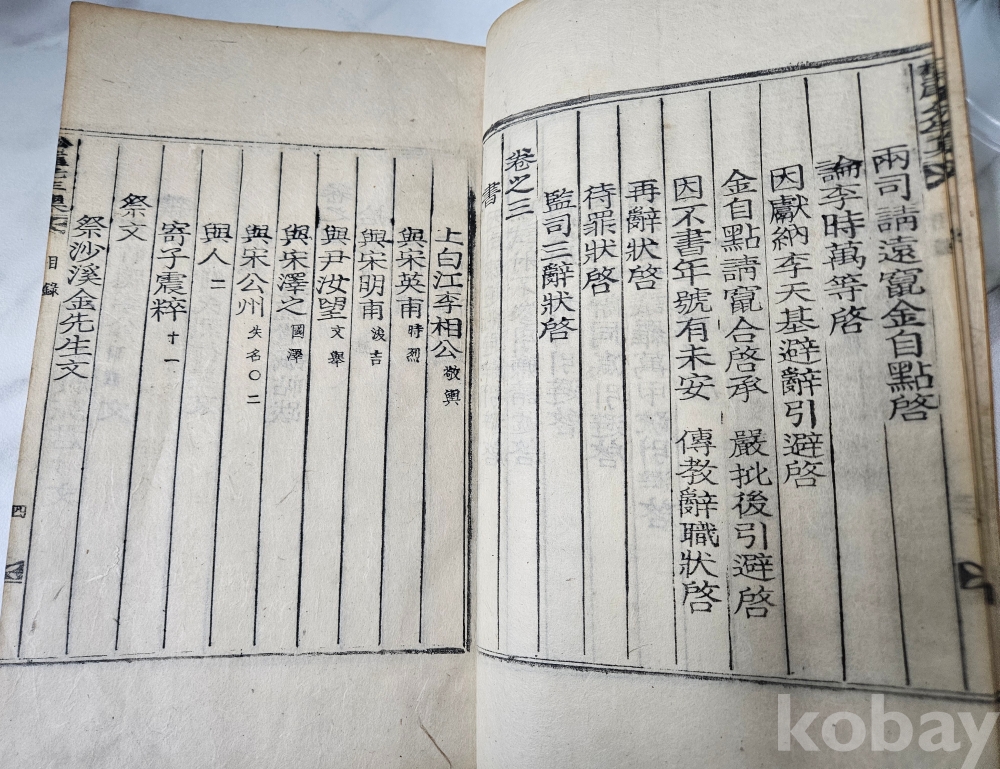 兩司請遠竄金自點啓
論李時萬等啓
因獻納李天基避辭引避啓
金自點請竄合啓承 嚴批後引避啓
因不書年號有未安 傳教辭職狀啓
再辭狀啓
待罪狀啓
監司三辭狀啓
卷之三
書
上白江李相公 敬輿
與宋英甫 時烈
與宋明甫 浚吉
與尹汝望 文擧
與宋澤之 國澤
與宋公州 失名〇二
與人 二
寄子震粹 十一
祭文
祭沙溪金先生文
目錄
四
kobay